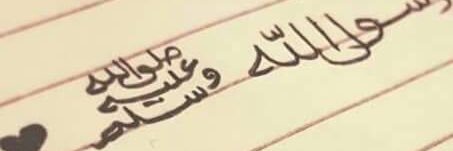 رسول الله
صلى الله
عليه
وسلم